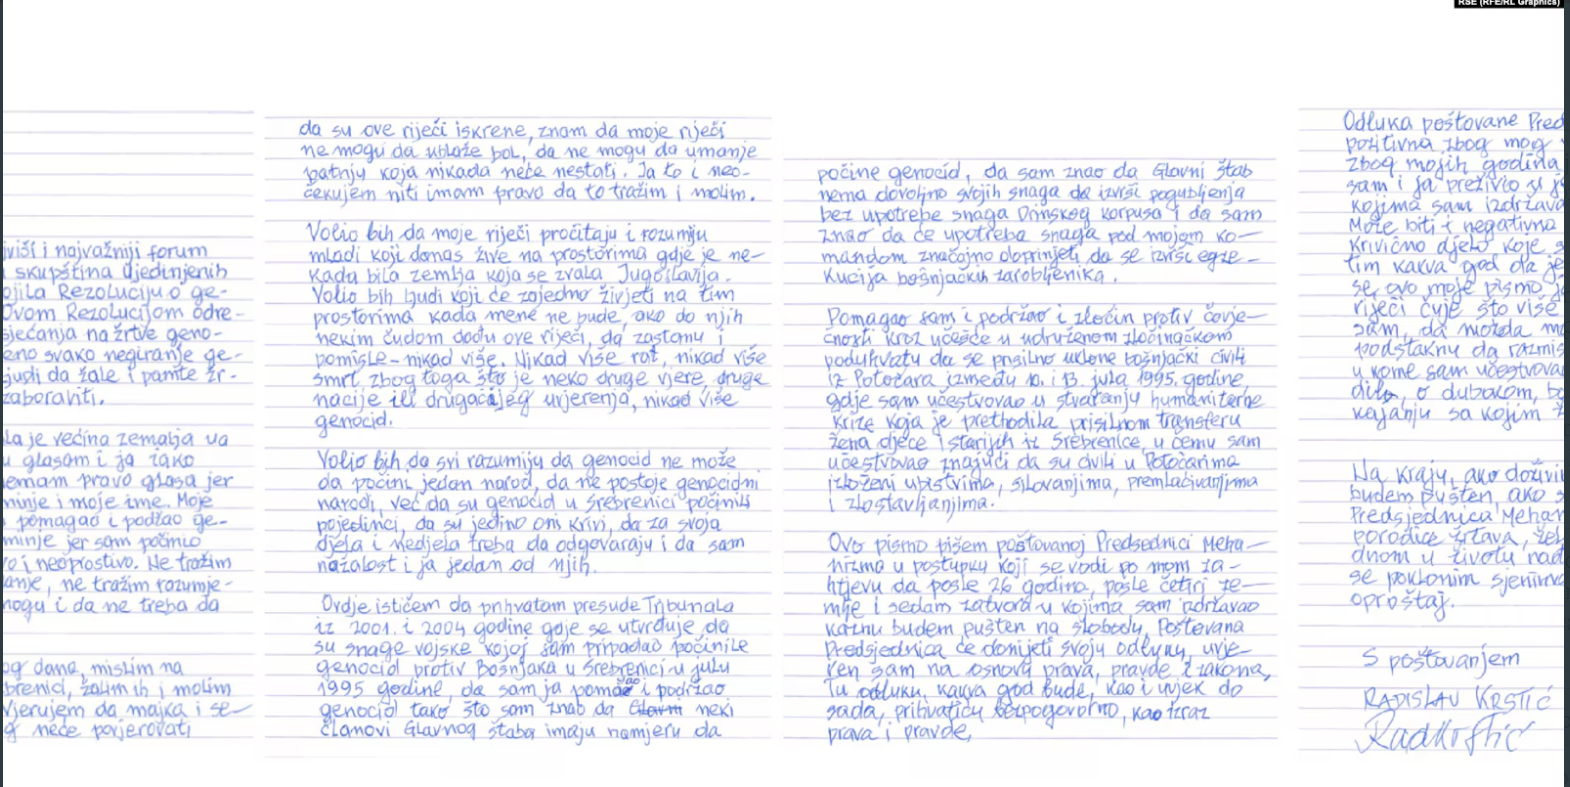 RSE (RFE/RL Graphics)
viši i najvažniji forum
skupština Ujedinjenih
ojila Rezoluciju o ge-
Ovom Rezolucijom odre-
sjećanja na žrtve geno-
eno svako negiranje ge-
judi da žale i pamte žr-
zaboraviti.
la je većina zemalja ua
u glasam i ja iako
emam pravo glasa jer
minje i moje ime. Moje
pomagao i podžao ge-
minje jer sam počinio
o i neoprostivo. Ne tražim
anje, ne tražim razumje-
mogu i da ne treba da
og dana, mislim na
brenici, žalim ih i molim
Vjerujem da majka i se-
g neće povjerovati
da su ove riječi iskrene, znam da moje riječi
ne mogu da ublaže bol, da ne mogu da umanje
patnju koja nikada neće nestati. Ja to i neo-
čekujem niti imam pravo da to tražim i molim.
Volio bih da moje riječi pročitaju i rozumiju
mladi koji danas žive na prostorima gdje je ne-
kada bila zemlja koja se zvala Jugoslavija.
Volio bih ljudi koji će zajedno živjeti na tim
prostorima kada mene ne bude, ako do njih
nekim čudom dođu ove riječi, da zastanu i
pomisle - nikad više. Nikad više rat, nikad više
smrt zbog toga što je neko druge vjere, druge
nacije ili drugačijeg uvjerenja, nikad više
genocid.
Volio bih da svi razumiju da genocid ne može
da počini jedan narod, da ne postoje genocidni
narodi, već da su genocid u Srebrenici počinili
pojedinci, da su jedino oni krivi, da za svoja
djela i nedjela treba da odgovaraju i da sam
nažalost i ja jedan od njih.
Ovdje ističem da prihvatam presude Tribunala
iz 2001. i 2004 godine gdje se utvrđuje da
su snage vojske kojoj sam pripadao počinile
genocid protiv Bošnjaka u Srebrenici u julu
1995 godine, da sam ja pomagao i podržao
genocid tako što sam znao da Glavni neki
članovi Glavnog štaba imaju namjeru da
počine genocid, da sam znao da Glavni štab
nema dovoljno svojih snaga da izvrši pogubljenja
bez upotrebe snaga Drinskog korpusa i da sam
znao da će upotreba snaga pod mojom ko-
mandom značajno doprinjeti da se izvrši egze-
kucija bošnjačkih zarobljenika.
Pomagao sam i podržao i zločin protiv čovje-
čnosti kroz učešće u udruženom zločinačkom
poduhvatu da se prisilno uklone bošnjački civili
iz Potočara između 10. i 13. jula 1995. godine,
gdje sam učestvovao u stvaranju humanitarne
krize koja je prethodila prisilnom transferu
žena djece i starijih iz Srebrenice, u čemu sam
učestvovao znajući da su civili u Potočarima
izloženi ubistvima, silovanjima, premlaćivanjima
i zlostavljanjima.
Ovo pismo pišem poštovanoj Predsednici Meha-
nizma u postupku koji se vodi po mom za-
htjevu da posle 26 godina, posle četiri ze-
mlje i sedam zatvora u kojima sam izdržavao
kaznu budem pušten na slobodu, Poštovana
Predsjednica će donijeti svoju odluku, uvje-
ren sam na osnovu prava, pravde i zakona,
Tu odluku, kakva god bude, kao i uvjek do
sada, prihvatiću bezpogovorno, kao izraz
prava i pravde,
Odluka poštovane Pred
pozitivna zbog mog
zbog mojih godina
sam i ja preživio si j
kojima sam izdržava
Može biti i negativna
krivično djelo koje s
tim kakva god da je
se, ovo moje pismo j
riječi čuje što više
sam, da možda mo
podstaknu da razmis
u kome sam učestvova
dilo, o dubokom, bo
kajanju sa kojim ž
Na kraju, ako doživi
budem pušten, ako s
Predsjednica Mehan
porodice žrtava, žel
dnom u životu nad
se poklonim sjenima
oproštaj.
S poštovanjem
RADISLAV KRSTIĆ
RadKrstić